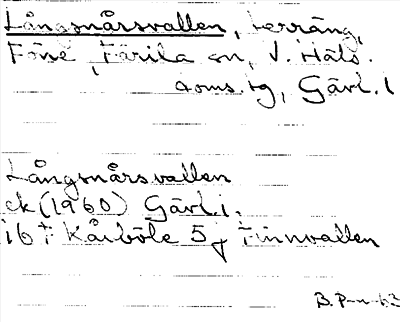 Långsnårsvallen, terräng,
Föne, Färila sn, V. Häls.
doms.tg, Gävl. l
Långsnårsvallen
ek (1960) Gävl. l.
16 F Kårböle 5 f Finnvallen
B. P-n-63